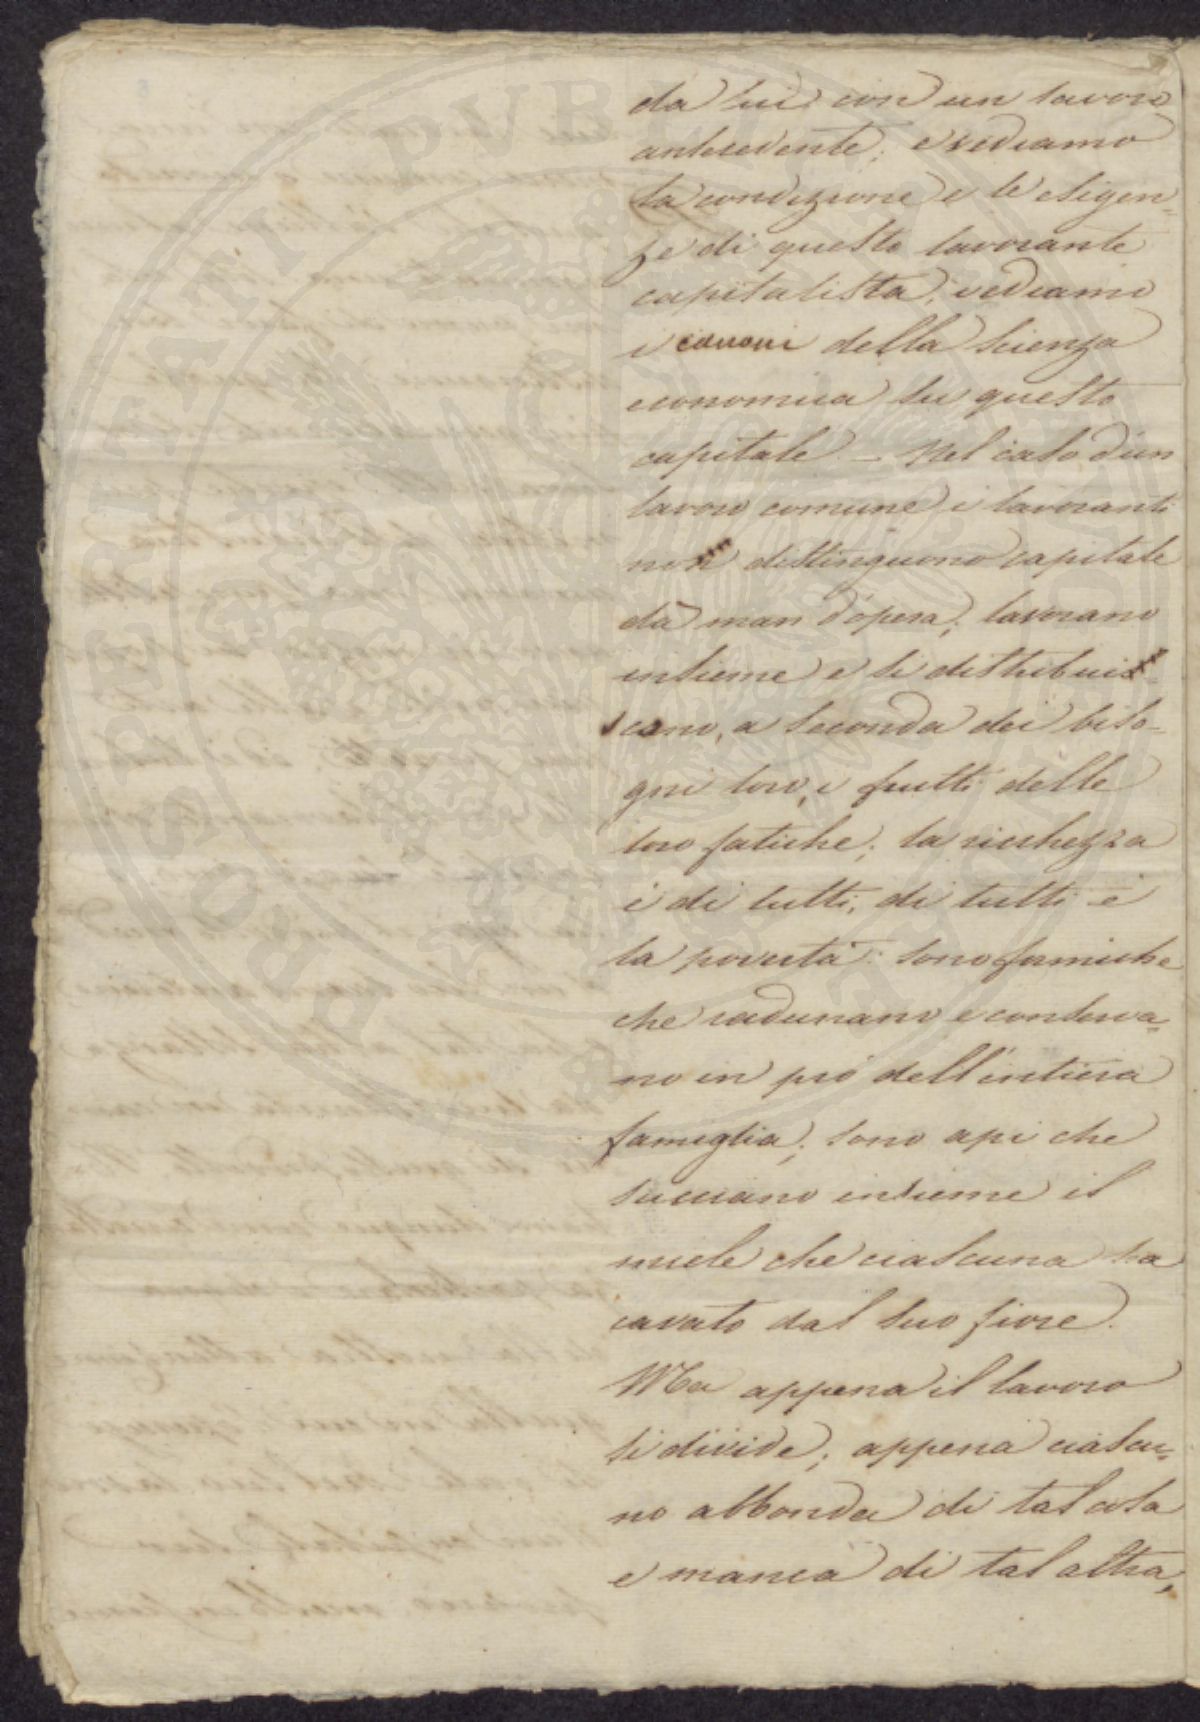 da lui con un lavoro
antecedente; e vediamo
la condizione e le esigen=
ze di questo lavorante
capitalista, vediamo
i canoni della scienza
economica su questo
capitale – Nel caso d'un
lavoro comune i lavoranti
non distinguono capitale
da man d'opera; lavorano
insieme e si distribuis
scono, a seconda dei biso-
gni loro, i frutti delle
loro fatiche; la ricchezza
è di tutti, di tutti è
la povertà: sono formiche
che radunano e conserva=
no in prò dell'intiera
famiglia; sono api che
succiano insieme il
miele che ciascuna ha
cavato dal suo fiore.
Ma appena il lavoro
si divide; appena ciascu=
no abbonda di tal cosa
e manca di tal altra,
PROSPERITATI PVBLICAE